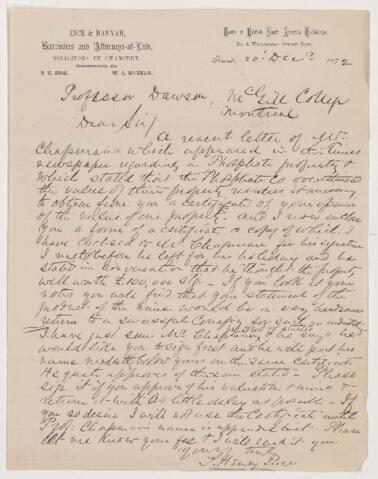 INCE & HANNAH,
Barristers and Attorneys-at-Law,
SOLICITORS IN CHANCERY,
Conveyancers, &c.
T. H. INCE. W. L. HANNAH.
Bank of British North America Buildings,
20 Decr 1872
Professor Dawson, McGill College
Montreal
Dear Sir/
A recent letter of Mr
Chapmans which appeared in
newspaper regarding a Phosphate property &
which stated that the Phosphate Co overestimated
the values of their property renders it necessary
to obtain from you a certificate of your opinion
of the value of our property - and I now enclose
you a form of a certificate a copy of which I
have enclosed to Mr Chapman for his signature
I met before he left for his holiday and he
stated in conversation that he thought the property
well worth £100,000 Stg. - If you look at your
notes you will find that your statement of the
product of the mine would be a very handsome
return to a successful Company for such an
I have just seen Mr Chapman he says he
would like you to sign first and he will put his
name before yours on the same Certificate
He quite approves of the - Please
sign it if you approve of his valuation & mine &
return it with as little delay as possible - If
you so desire I will not use the Certificate until
Prof: Chapman's name is appended to it - Please
let me know your fee & I will send it you
Yours truly
T. Henry Ince